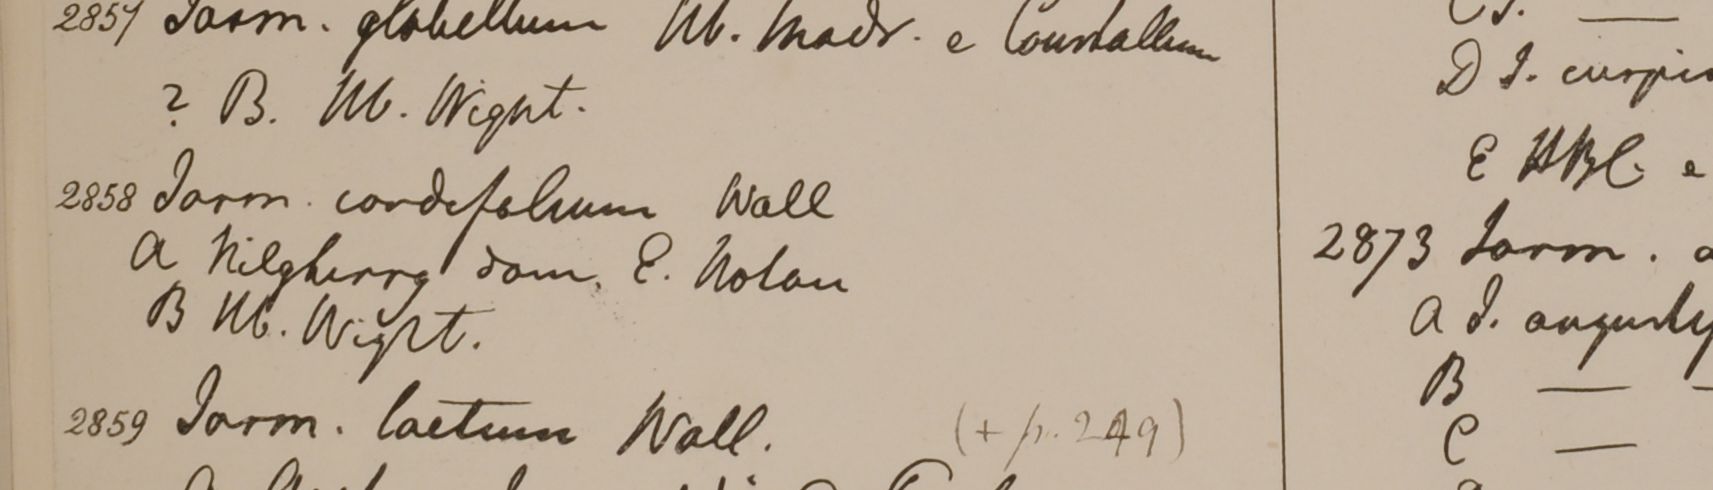 2857 Jasm. glabellum Hb. Madr. e Courtallum
? B. Hb. Wight.
2858 Jasm. cordifolium Wall
A Nilgherry dom. E. Nolan
B Hb. Wight.
2859 Jasm. laetum Wall. (+ p. 249)
D J. cuspid
E HBC. e
2873 Jasm. a
A J. angustif
B — —
C —